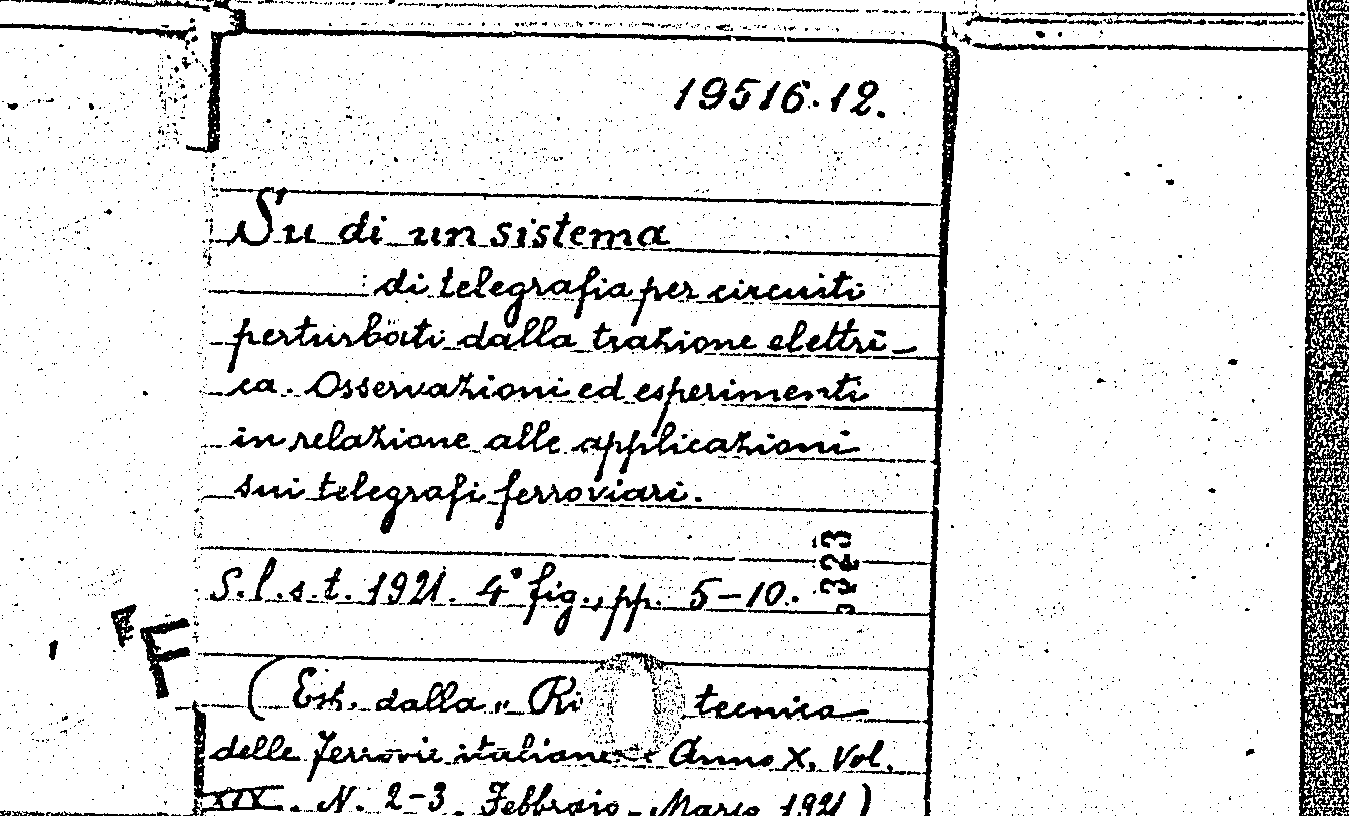 19516.12.
Su di un sistema
di telegrafia per circuiti
perturbati dalla trazione elettri-
ca. Osservazioni ed esperimenti
in relazione alle applicazioni
sui telegrafi ferroviari.
S.l.s.t. 1921. 4° fig., pp. 5-10.
(Estr. dalla "Ri tecnica
delle Ferrovie italiane" Anno X. Vol.
XIX. N. 2-3. Febbraio-Marzo 1921)